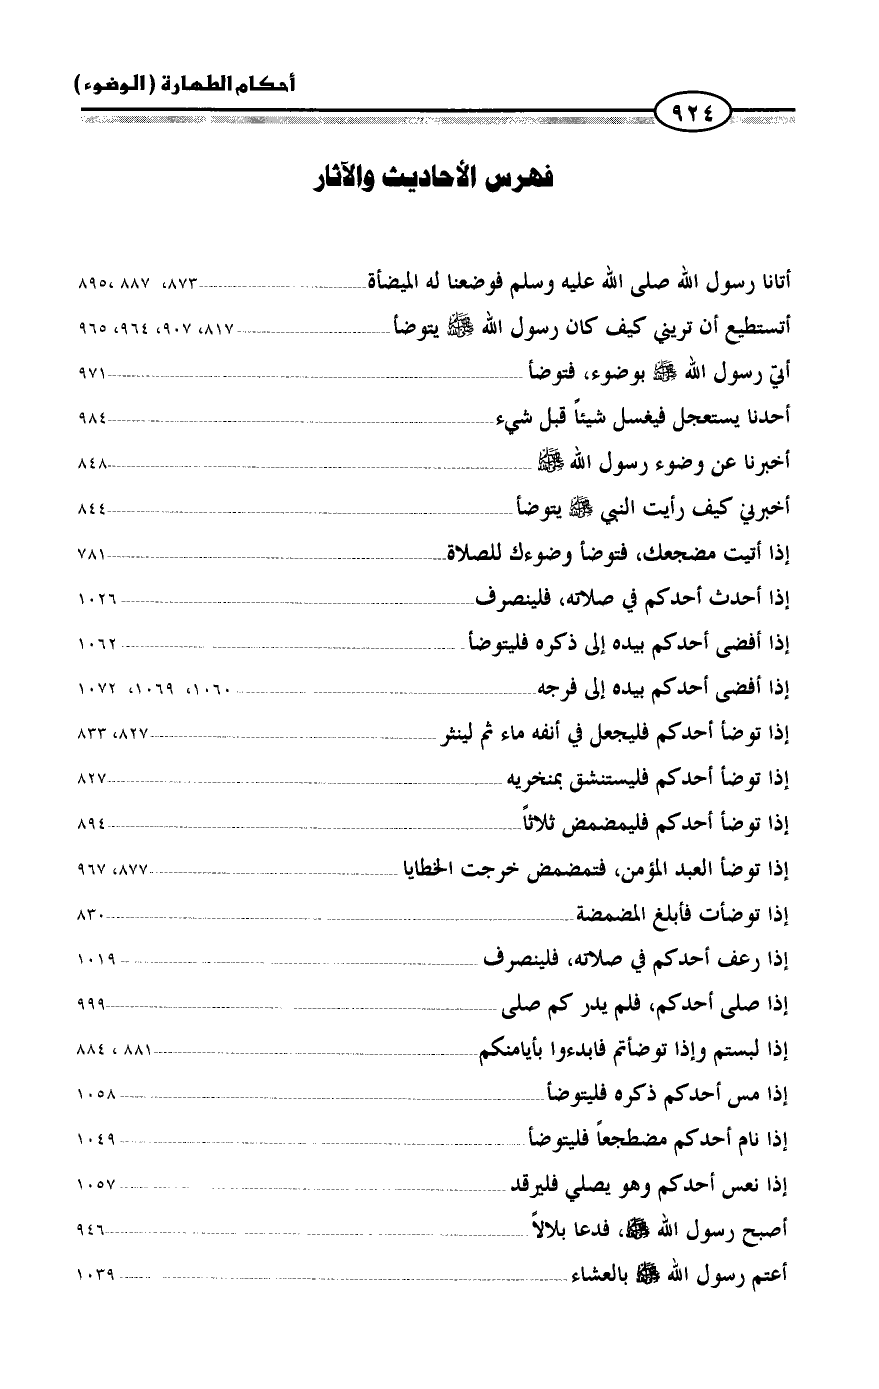 أحكام الطهارة (الوضوء)
٩٢٤
فهرس الأحاديث والآثار
أتانا رسول الله صلى الله عليه وسلم فوضعنا له الميضأة ٨٧٣، ٨٨٧، ٨٩٥
أتستطيع أن تريني كيف كان رسول الله ﷺ يتوضأ ٨١٧، ٩٠٧، ٩٦٤، ٩٦٥
أتيَ رسول الله ﷺ بوضوء، فتوضأ ٩٧١
أحدنا يستعجل فيغسل شيئاً قبل شيء ٩٨٤
أخبرنا عن وضوء رسول الله ﷺ ٨٤٨
أخبرني كيف رأيت النبي ﷺ يتوضأ ٨٤٤
إذا أتيت مضجعك، فتوضأ وضوءك للصلاة ٧٨١
إذا أحدث أحدكم في صلاته، فلينصرف ١٠٢٦
إذا أفضى أحدكم بيده إلى ذكره فليتوضأ ١٠٦٢
إذا أفضى أحدكم بيده إلى فرجه ١٠٦٠، ١٠٦٩، ١٠٧٢
إذا توضأ أحدكم فليجعل في أنفه ماء ثم لينثر ٨٢٧، ٨٣٣
إذا توضأ أحدكم فليستنشق بمنخريه ٨٢٧
إذا توضأ أحدكم فليمضمض ثلاثاً ٨٩٤
إذا توضأ العبد المؤمن، فتمضمض خرجت الخطايا ٨٧٧، ٩٦٧
إذا توضأت فأبلغ المضمضة ٨٣٠
إذا رعف أحدكم في صلاته، فلينصرف ١٠١٩
إذا صلى أحدكم، فلم يدر كم صلى ٩٩٩
إذا لبستم وإذا توضأتم فابدءوا بأيامنكم ٨٨١، ٨٨٤
إذا مس أحدكم ذكره فليتوضأ ١٠٥٨
إذا نام أحدكم مضطجعاً فليتوضأ ١٠٤٩
إذا نعس أحدكم وهو يصلي فليرقد ١٠٥٧
أصبح رسول الله ﷺ، فدعا بلالاً ٩٤٦
أعتم رسول الله ﷺ بالعشاء ١٠٣٩